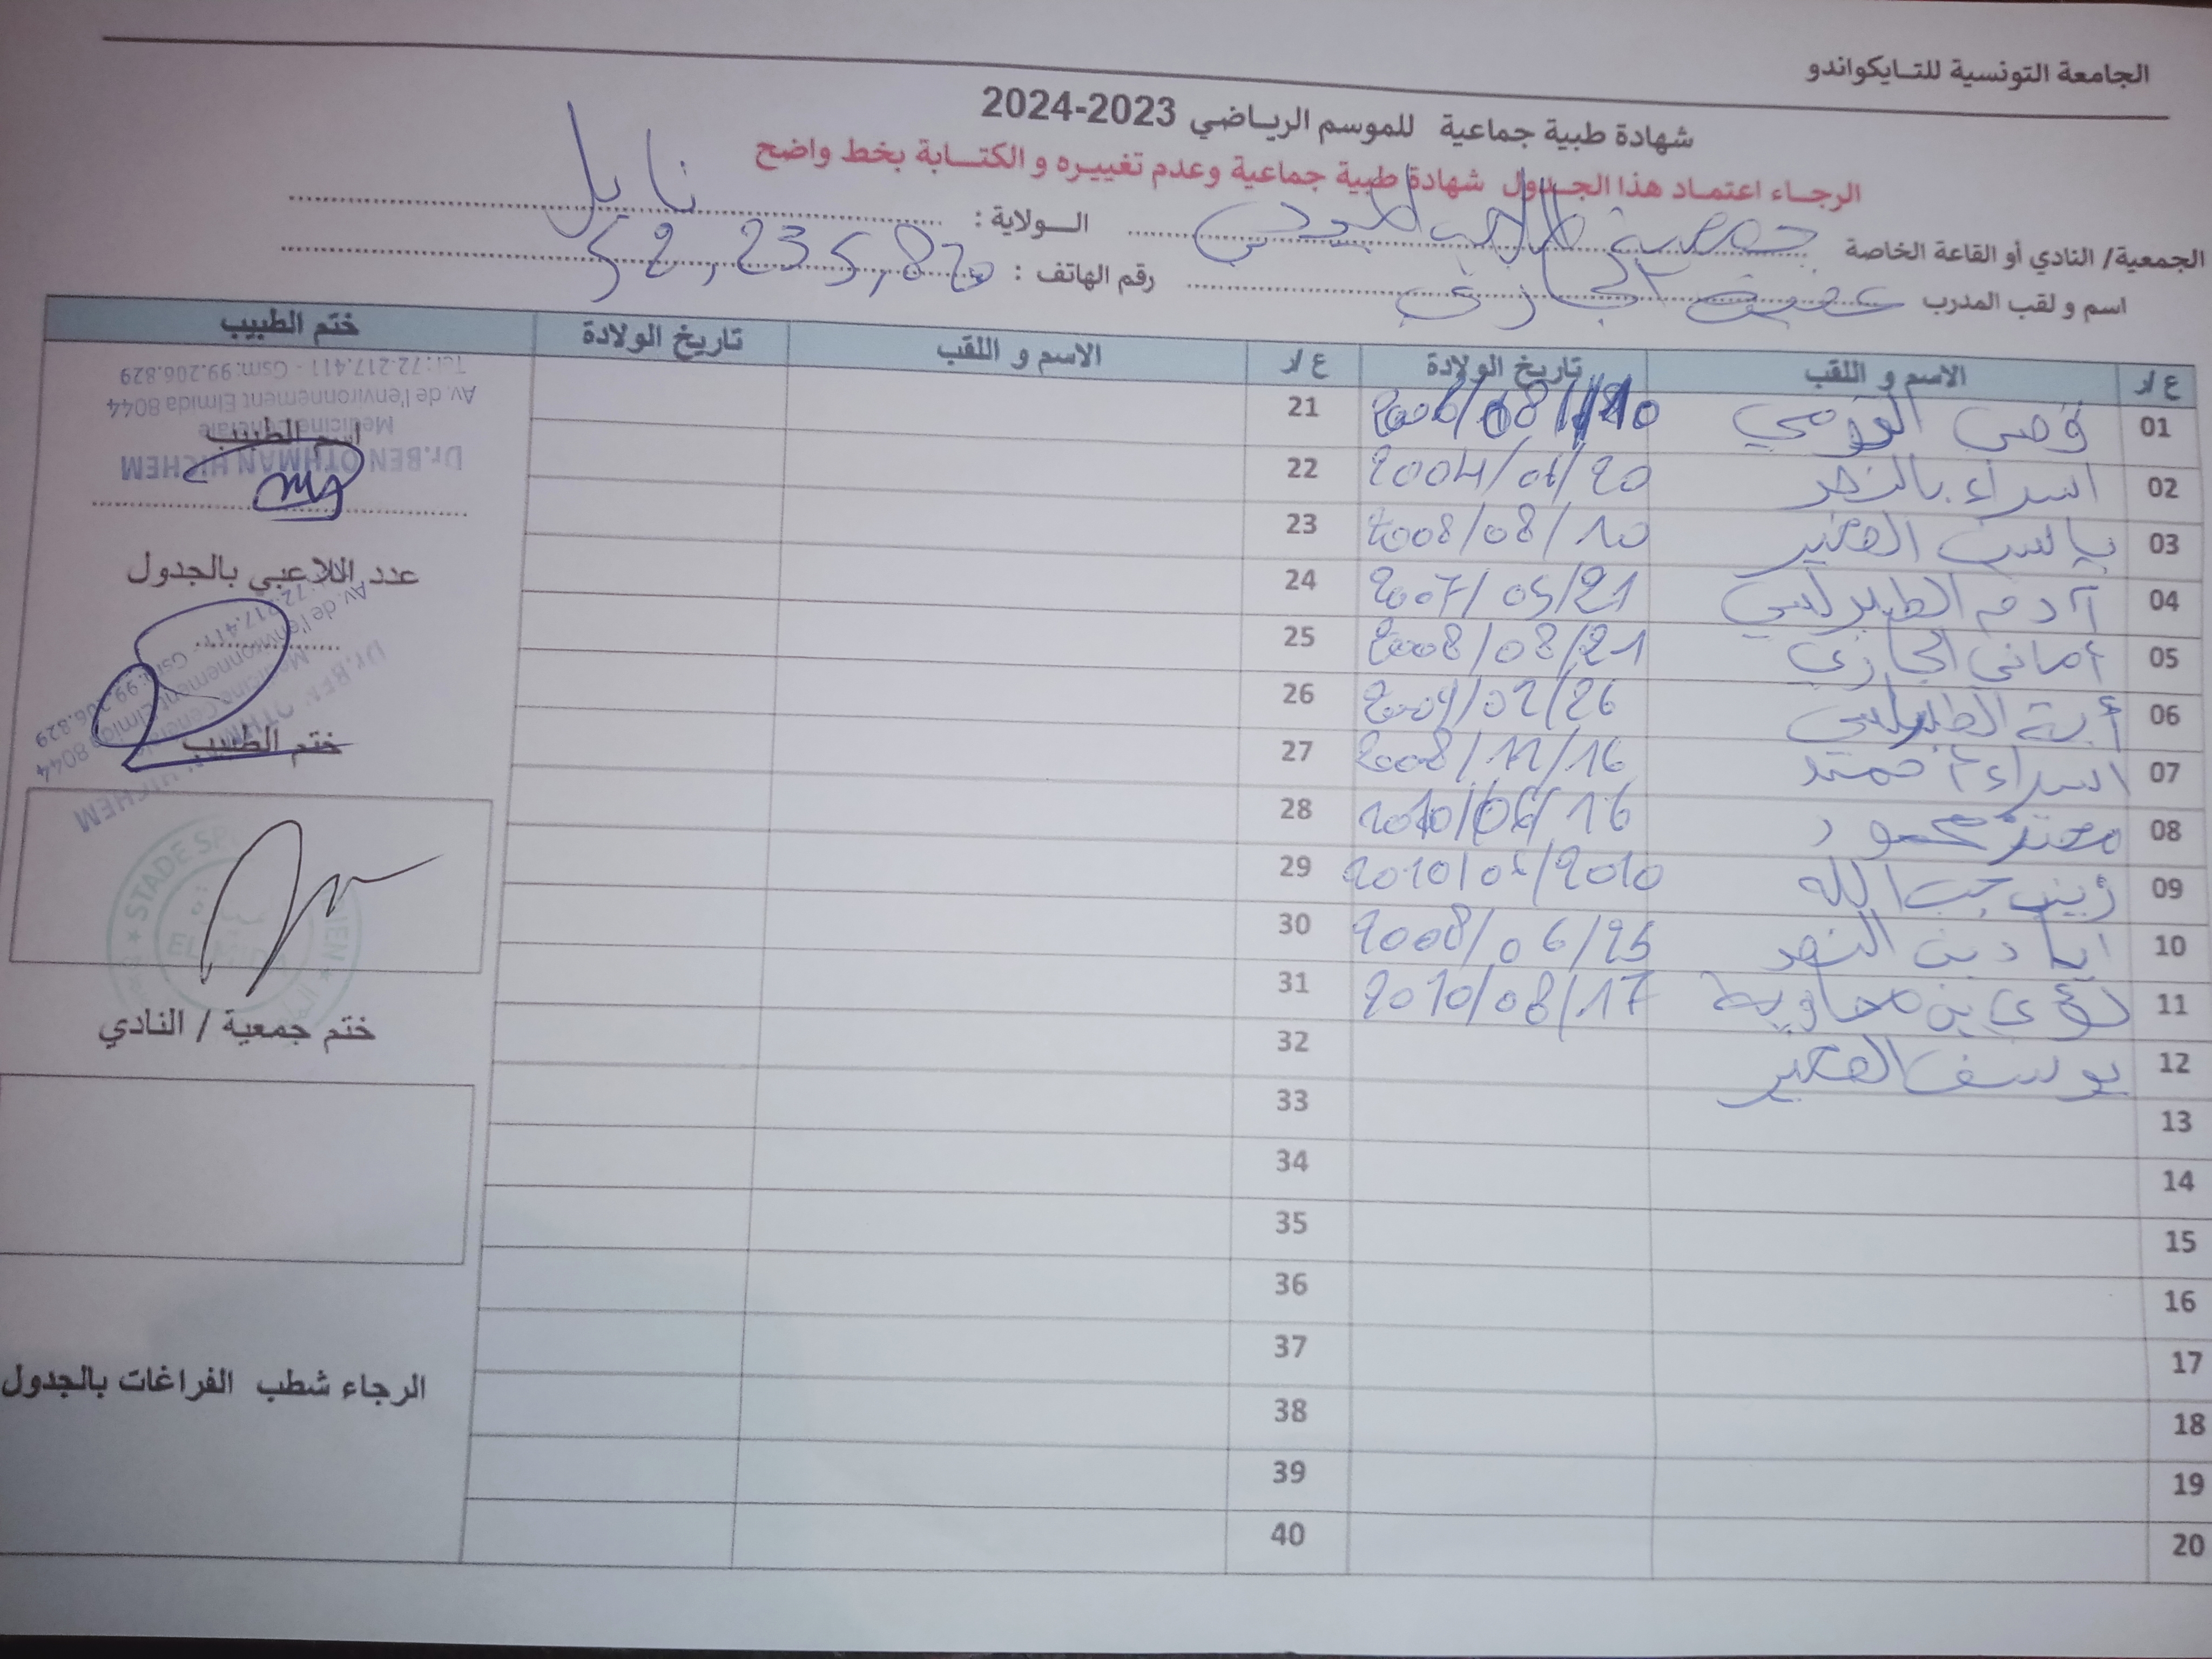 الجامعة التونسية للتايكواندو
شهادة طبية جماعية للموسم الرياضي 2023-2024
الرجاء اعتماد هذا الجدول شهادة طبية جماعية وعدم تغييره و الكتابة بخط واضح
الجمعية/ النادي أو القاعة الخاصة جمعية
الولاية : نابل
اسم و لقب المدرب
رقم الهاتف : 52,235,820
ع/ر الاسم و اللقب تاريخ الولادة ع/ر الاسم و اللقب تاريخ الولادة ختم الطبيب
01 قصي 21
02 اسراء بالنصر 2004/06/20 22
03 2008/08/10 23
04 آدم الطبرلسي 2007/05/21 24
05 أماني الحجازي 2008/08/21 25
06 أية الطبرلسي 26
07 اسراء 2008/11/16 27
08 معتز محمود 2010/06/16 28
09 زينب جب الله 29
10 اياد بن النصر 2008/06/25 30
11 لؤي بن معاوية 2010/08/17 31
12 يوسف 32
13 33
14 34
15 35
16 36
17 37
18 38
19 39
20 40
Dr.BEN OTHMAN HICHEM
Medicine Générale
Av. de l'environnement Elmida 8044
Tel:72.217.411 - Gsm:99.206.829
اسم الطبيب
عدد اللاعبي بالجدول
Dr.BEN OTHMAN HICHEM
Medicine Générale
Av. de l'environnement Elmida 8044
72.217.411 - Gsm:99.206.829
ختم الطبيب
STADE SP
EL MIDA
ختم جمعية / النادي
الرجاء شطب الفراغات بالجدول